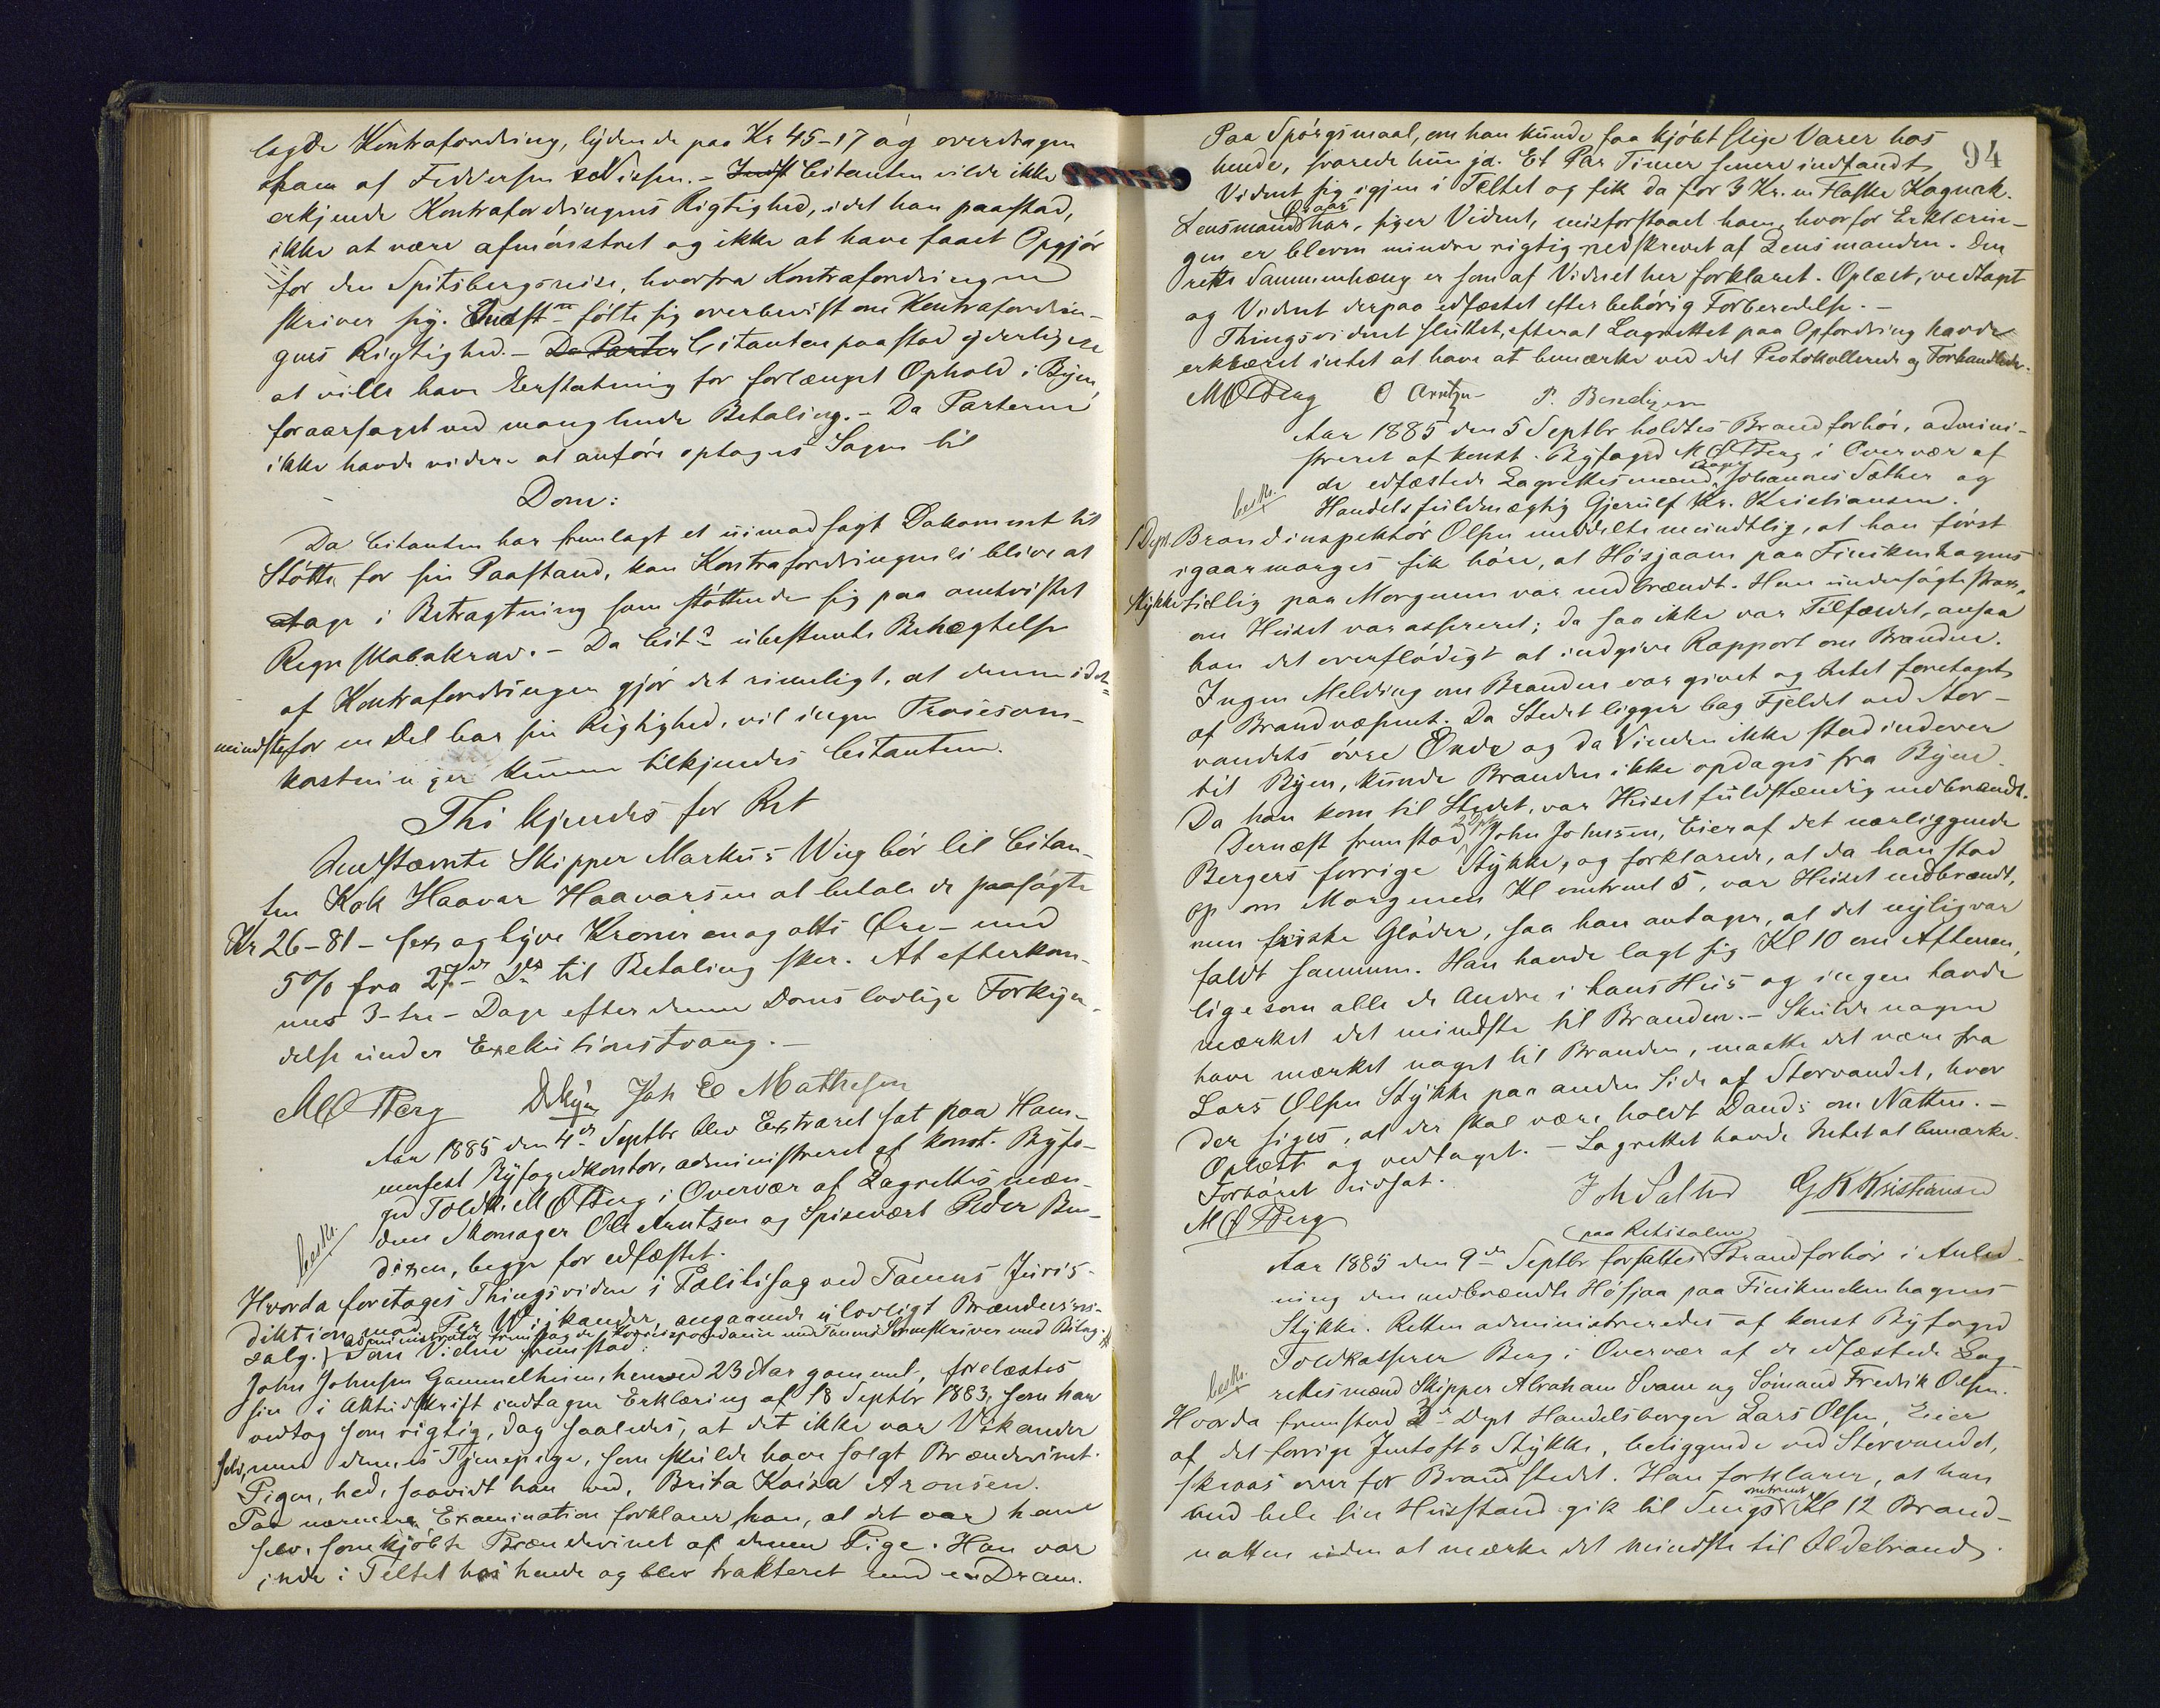 lagde Kontrafordring, lydende paa Kr 45-17 og overdragen
ham af Feddersen & Nissen. - Indst Citanten vilde ikke
erkjende Kontrafordringens Rigtighed, idet han paastod,
ikke at være afmønstret og ikke at have faaet Opgjør
for den Spitsbergsreise, hvorfra Kontrafordringen
skriver sig. Indst<sup>te</sup> følte sig overbevist om Kontrafordrin-
gens Rigtighed. - De Parter Citanten paastod yderligere
at ville have Erstatning for forlænget Ophold i Byen,
foraarsaget ved manglende Betaling. - Da Parterne
ikke havde videre at anføre optoges Sagen til
Dom:
Da Citanten har fremlagt et uimodsagt Dokument til
Støtte for sin Paastand, kan Kontrafordringen ei blive at
tage i Betragtning som støttende sig paa omtvistet
Regnskabskrav. - Da Cit<sup>s</sup> ubestemte Benægtelse
af Kontrafordringen gjør det rimeligt, at denne idet-
mindste for en Del har sin Rigtighed, vil ingen Procesom-
kostninger kunne tilkjendes Citanten.
Thi kjendes for Ret
Indstævnte Skipper Markus Wiig bør til Citan-
ten Kok Haavar Haavarsen at betale de paasøgte
Kr 26-81 - sex og tyve Kroner en og otti Øre - med
5% fra 27de Ds til Betaling sker. At efterkom-
mes 3 - tre - Dage efter denne Doms lovlige Forkyn-
delse under Exekutionstvang. -
M Ø Berg Joh E Mathesen
Aar 1885 den 4de Septbr blev Extraret sat paa Ham-
merfest Byfogedkontor, administreret af konst. Byfo-
ged Toldk. M Ø Berg i Overvær af Lagrettesmæn-
beskr.
dene Skomager Ole Arntzen og Spisevært Peder Ben-
dixen, begge før edfæstet.
Hvorda foretoges Thingsvidne i Politisag ved Tanens Juris-
diktion mod Per Wikander, angaaende ulovligt Brændevins-
salg. Administrator fremlagde Korrespondance med Tanens Sorenskriver med Bilag.
Som Vidne fremstod:
John Johnsen Gammelheim, henved 23 Aar gammel, forelæstes
sin i Aktudskrift indtagne Erklæring af 18 Septbr 1883, som han
vedtog som rigtig, dog saaledes, at det ikke var Vikander
selv, men dennes Tjenepige, som skulde have solgt Brændevinet.
Pigen, hed, saavidt han ved, Brita Kaisa Aronsen.
Paa nærmere Examination forklarer han, at det var ham
selv, som kjøbte Brændevinet af denne Pige. Han var
inde i Teltet hos hende og blev trakteret med en Dram.
94
Paa Spørgsmaal, om han kunde faa kjøbt slige Varer hos
hende, svarede hun ja. Et Par Timer senere indfandt
Vidnet sig igjen i Teltet og fik da for 3 Kr. en Flaske Kognak.
Lensmand har, siger Vidnet, misforstaaet ham, hvorfor Erklærin-
gen er bleven mindre rigtig nedskrevet af Lensmanden. Den
rette Sammenhæng er som af Vidnet her forklaret. Oplæst, vedtaget
og Vidnet derpaa edfæstet efter behørig Forberedelse. -
Thingsvidnet sluttet, efterat Lagrettet paa Opfordring havde
erklæret intet at have at bemærke ved det Protokollerede og Forhandlede.
M Ø Berg O Arntzen P. Bendixen
Aar 1885 den 5 Septbr holdtes Brandforhør, admini-
streret af konst. Byfoged M Ø Berg i Overvær af
de edfæstede Lagrettesmænd Johannes Sæther og
beskr.
Handelsfuldmægtig Gjerulf Kr. Kristiansen.
1 Dept. Brandinspektør Olsen meddelte mundtlig, at han først
igaarmorges fik høre, at Høsjaaen paa Finikenhagens
Stykke tidlig paa Morgenen var nedbrændt. Han undersøgte strax,
om Huset var assureret; da saa ikke var Tilfældet, ansaa
han det overflødigt at indgive Rapport om Branden.
Ingen Melding om Branden var givet og Intet foretaget
af Brandvæsenet. Da Stedet ligger bag Fjeldet ved Stor-
vandets øvre Ende og da Vinden ikke stod indover
til Byen, kunde Branden ikke opdages fra Byen.
Da han kom til Stedet, var Huset fuldstændig nedbrændt.
Dernæst fremstod 2 Dept John Johnsen, Eier af det nærliggende
Bergers forrige Stykke, og forklarede, at da han stod
op om Morgenen Kl omtrent 5, var Huset nedbrændt,
men friske Gløder, saa han antager, at det nylig var
faldt sammen. Han havde lagt sig Kl 10 om Aftenen,
ligesom alle de Andre i hans Hus og ingen havde
mærket det mindste til Branden. - Skulde nogen
have mærket noget til Branden, maatte det være fra
Lars Olsens Stykke paa anden Side af Storvandet, hvor
der siges, at der skal være holdt Dands om Natten. -
Oplæst og vedtaget. - Lagrettet havde Intet at bemærke.
Forhøret udsat.
M Ø Berg Joh Sæther G K Kristiansen
Aar 1885 den 9de Septbr fortsattes paa Retssalen Brandforhør i Anled-
ning den nedbrændte Høsjaa paa Finikenhagens
Stykke. Retten administreredes af konst Byfoged
Toldkasserer Berg i Overvær af de edfæstede Lag-
beskr.
rettesmænd Skipper Abraham Svane og Sømand Fredrik Olsen.
Hvorda fremstod 3de Dept Handelsborger Lars Olsen, Eier
af det forrige Jentofts Stykke, beliggende ved Storvandet,
skraas over for Brandstedet. Han forklarer, at han
med hele sin Husstand gik til Sengs omtrent Kl 12 Brand-
natten uden at mærke det mindste til Ildebrand.